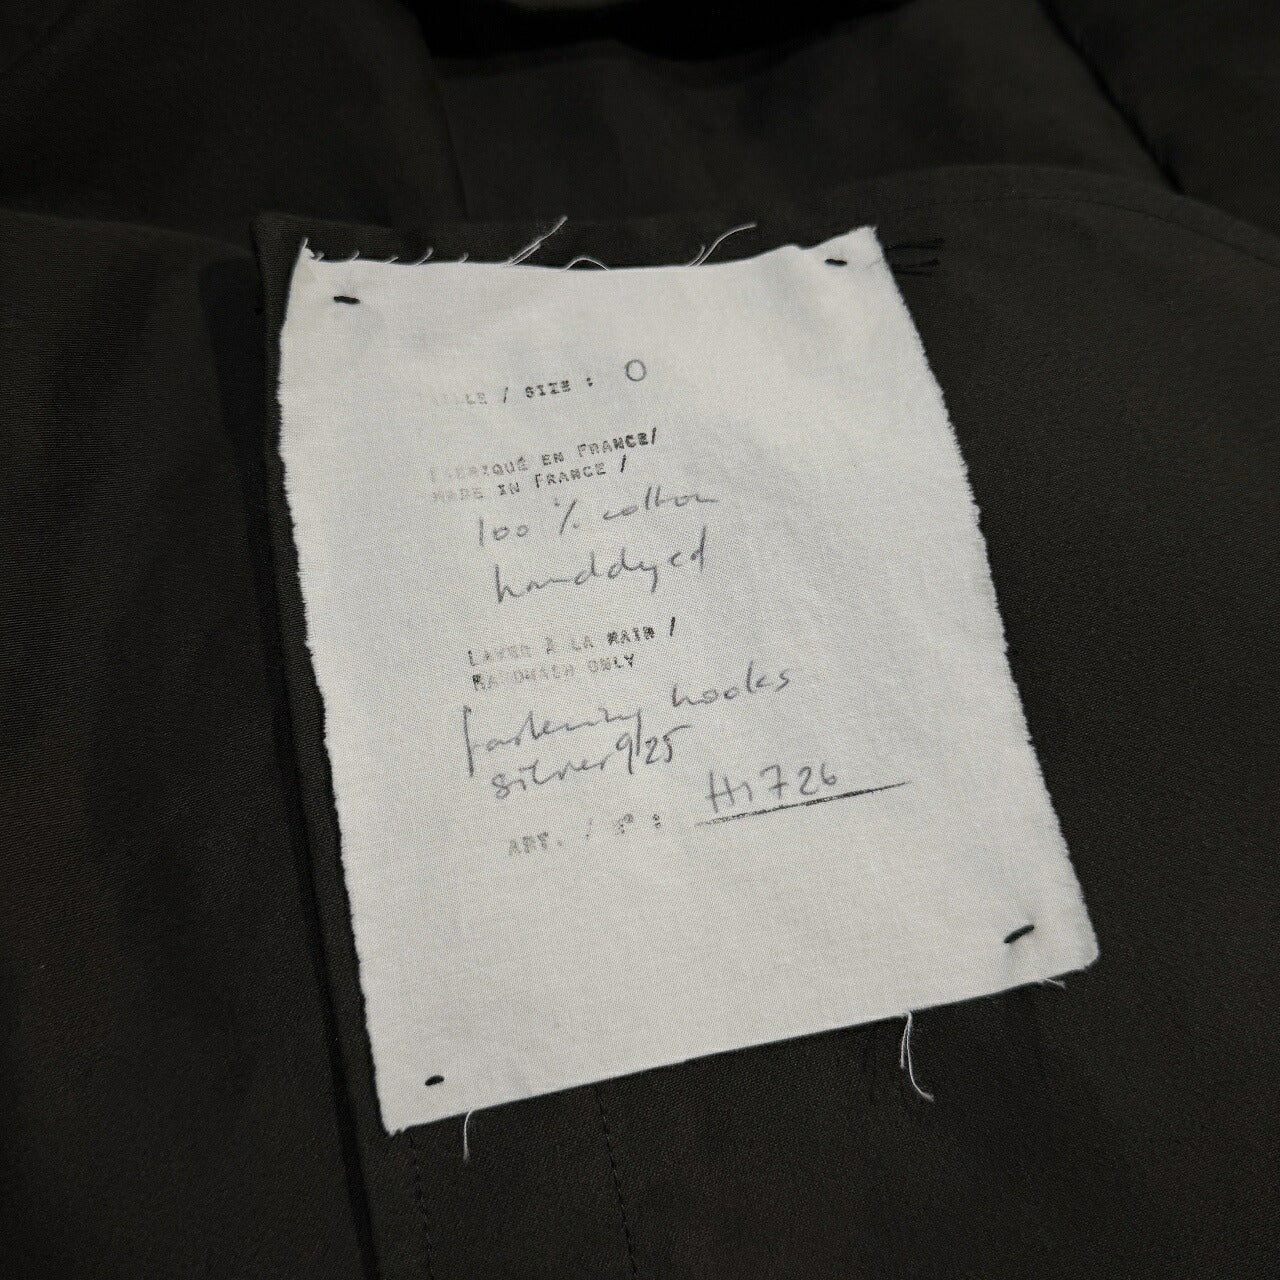 TAILLE / SIZE : 0
FABRIQUÉ EN FRANCE/
MADE IN FRANCE /
100 % cotton
handdyed
LAVER À LA MAIN /
HANDWASH ONLY
fastening hooks
silver 9/25
ART. / N° : H1726